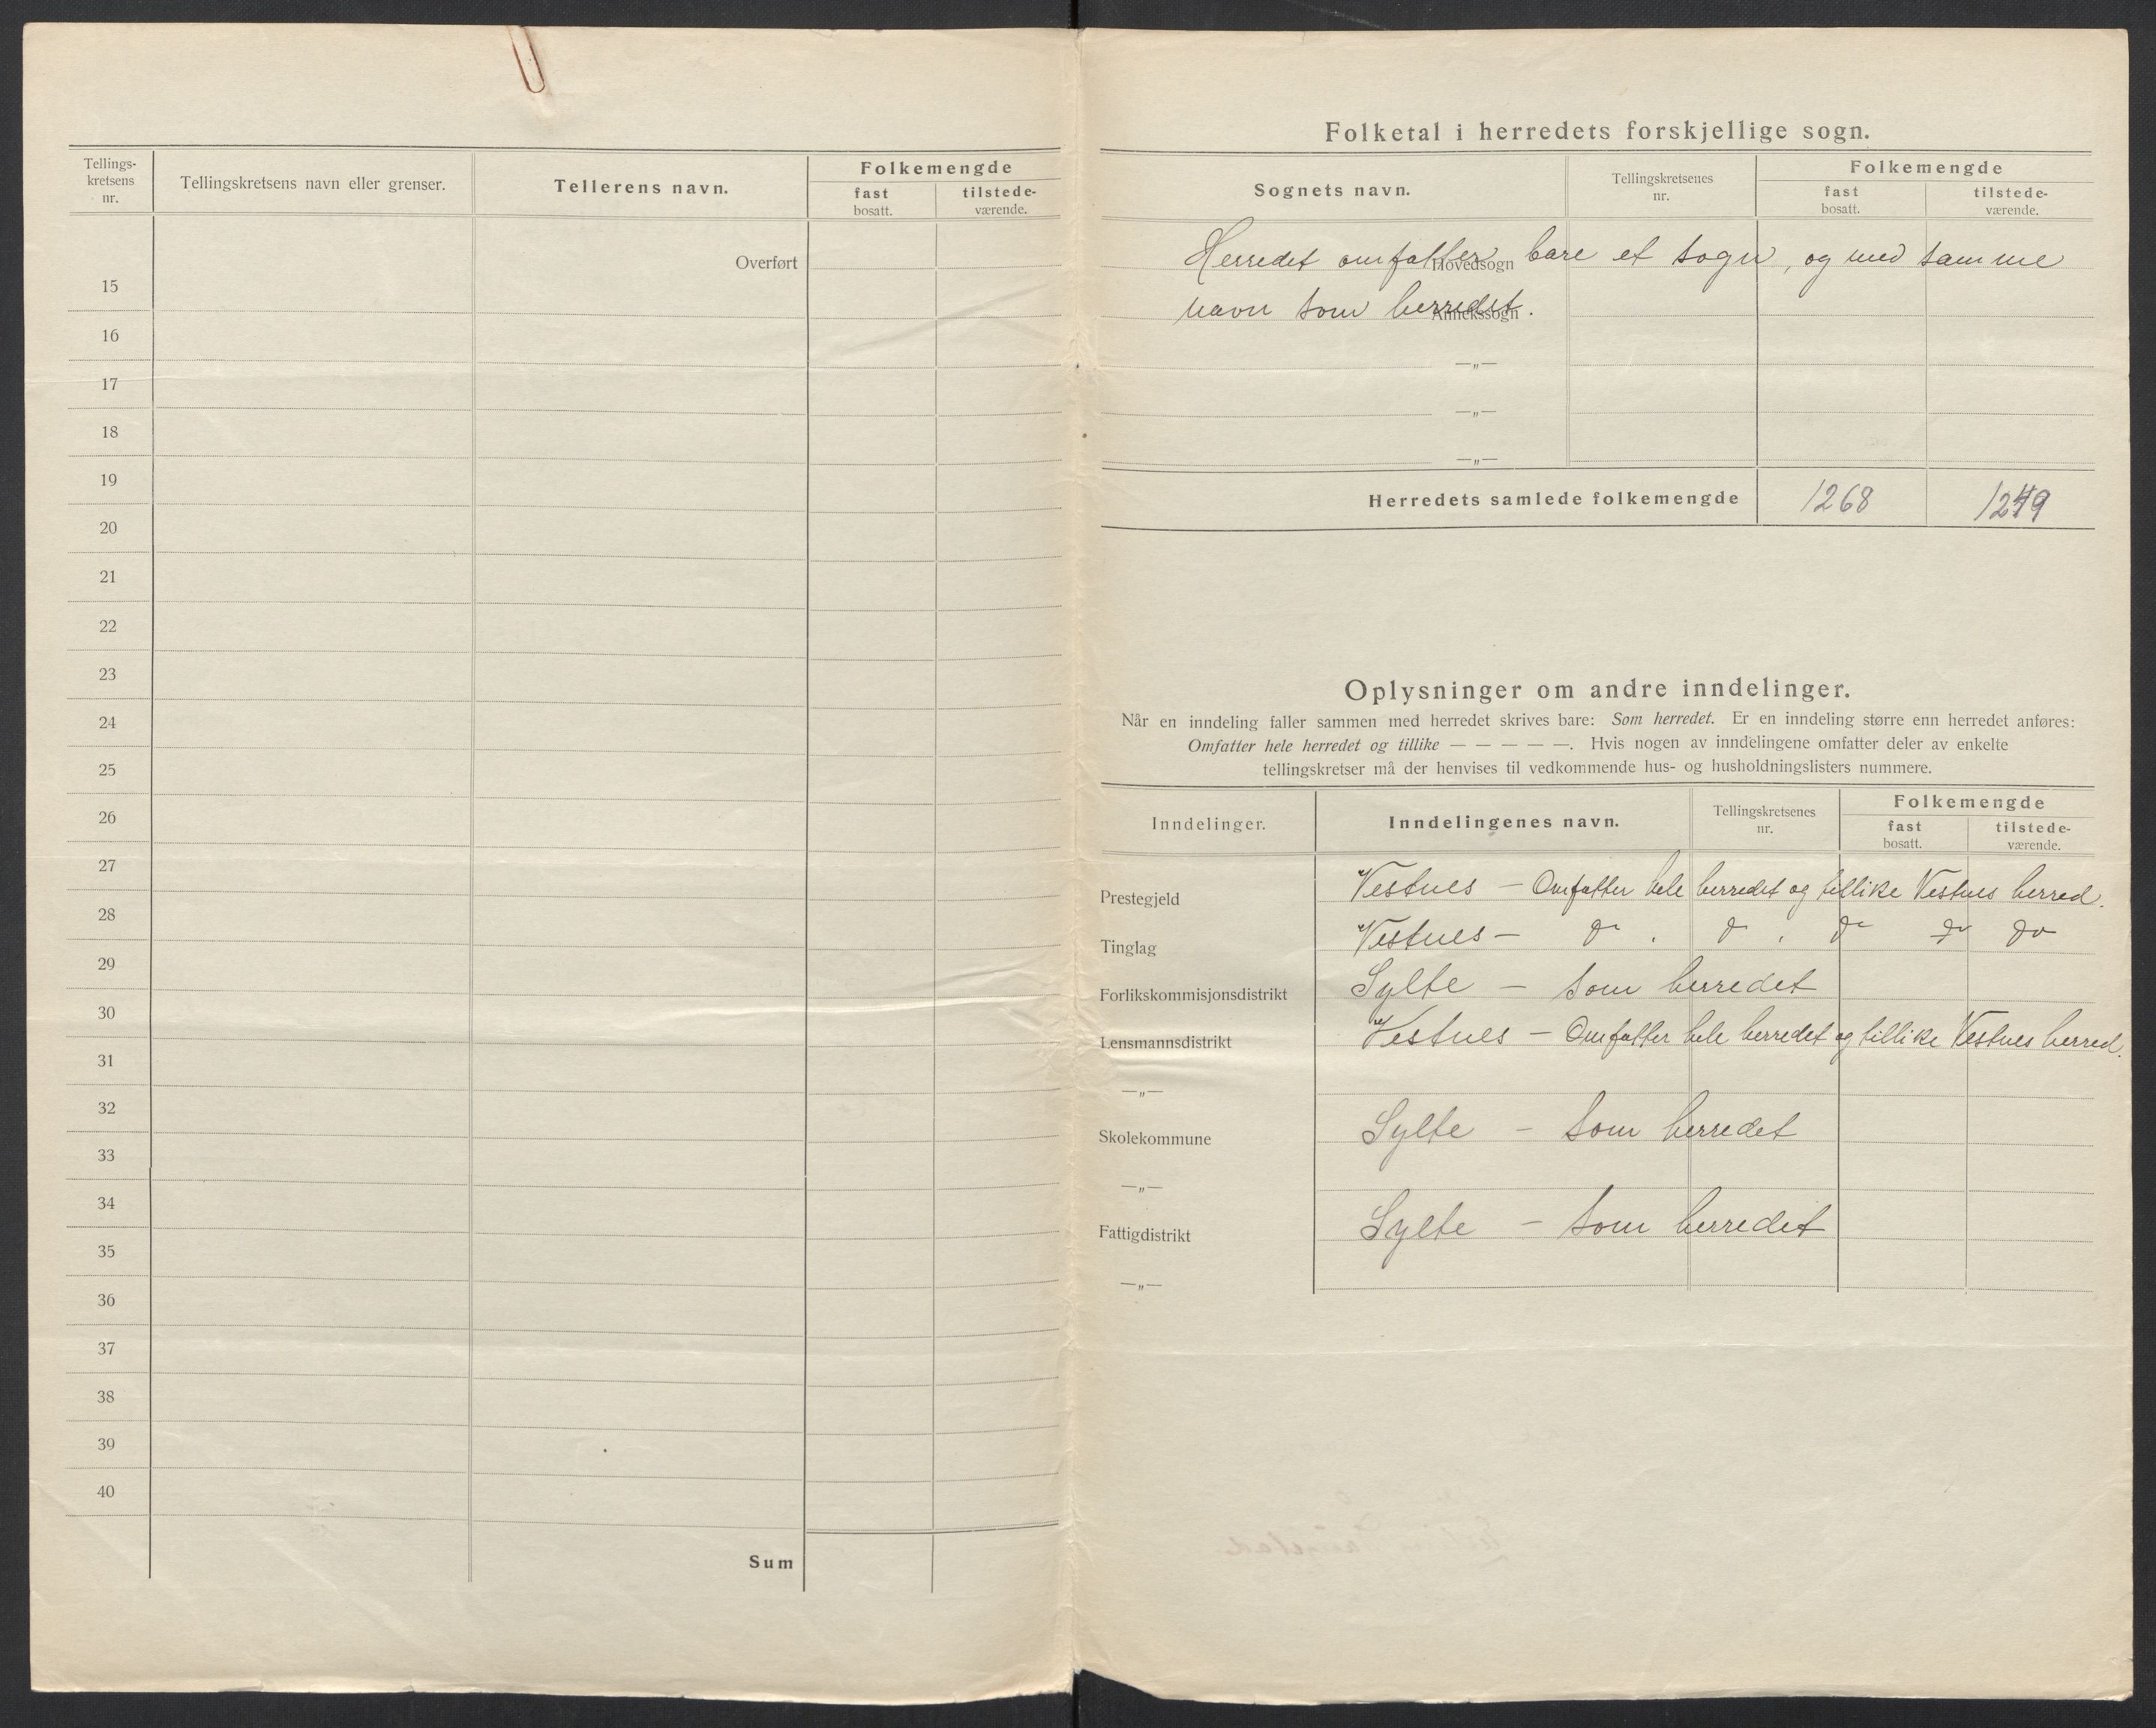 Tellings-
kretsens
nr.
Tellingskretsens navn eller grenser.
Tellerens navn.
Folkemengde
fast
bosatt.
tilstede-
værende.
Overført
15
16
17
18
19
20
21
22
23
24
25
26
27
28
29
30
31
32
33
34
35
36
37
38
39
40
Sum
Folketal i herredets forskjellige sogn.
Sognets navn.
Tellingskretsenes
nr.
Folkemengde
fast
bosatt.
tilstede-
værende.
Herredet omfatter bare et sogn, og med samme
Hovedsogn
navn som herredet.
Annekssogn
—„—
—„—
—„—
Herredets samlede folkemengde 1268 1249
Oplysninger om andre inndelinger.
Når en inndeling faller sammen med herredet skrives bare: Som herredet. Er en inndeling større enn herredet anføres:
Omfatter hele herredet og tillike — — — — —. Hvis nogen av inndelingene omfatter deler av enkelte
tellingskretser må der henvises til vedkommende hus- og husholdningslisters nummere.
Inndelinger.
Inndelingenes navn.
Tellingskretsenes
nr.
Folkemengde
fast
bosatt.
tilstede-
værende.
Prestegjeld Vestnes — Omfatter hele herredet og tillike Vestnes herred.
Tinglag Vestnes — do do do do do
Forlikskommisjonsdistrikt Sylte — som herredet
Lensmannsdistrikt Vestnes — Omfatter hele herredet og tillike Vestnes herred.
—„—
Skolekommune Sylte — som herredet
—„—
Fattigdistrikt Sylte — som herredet
—„—